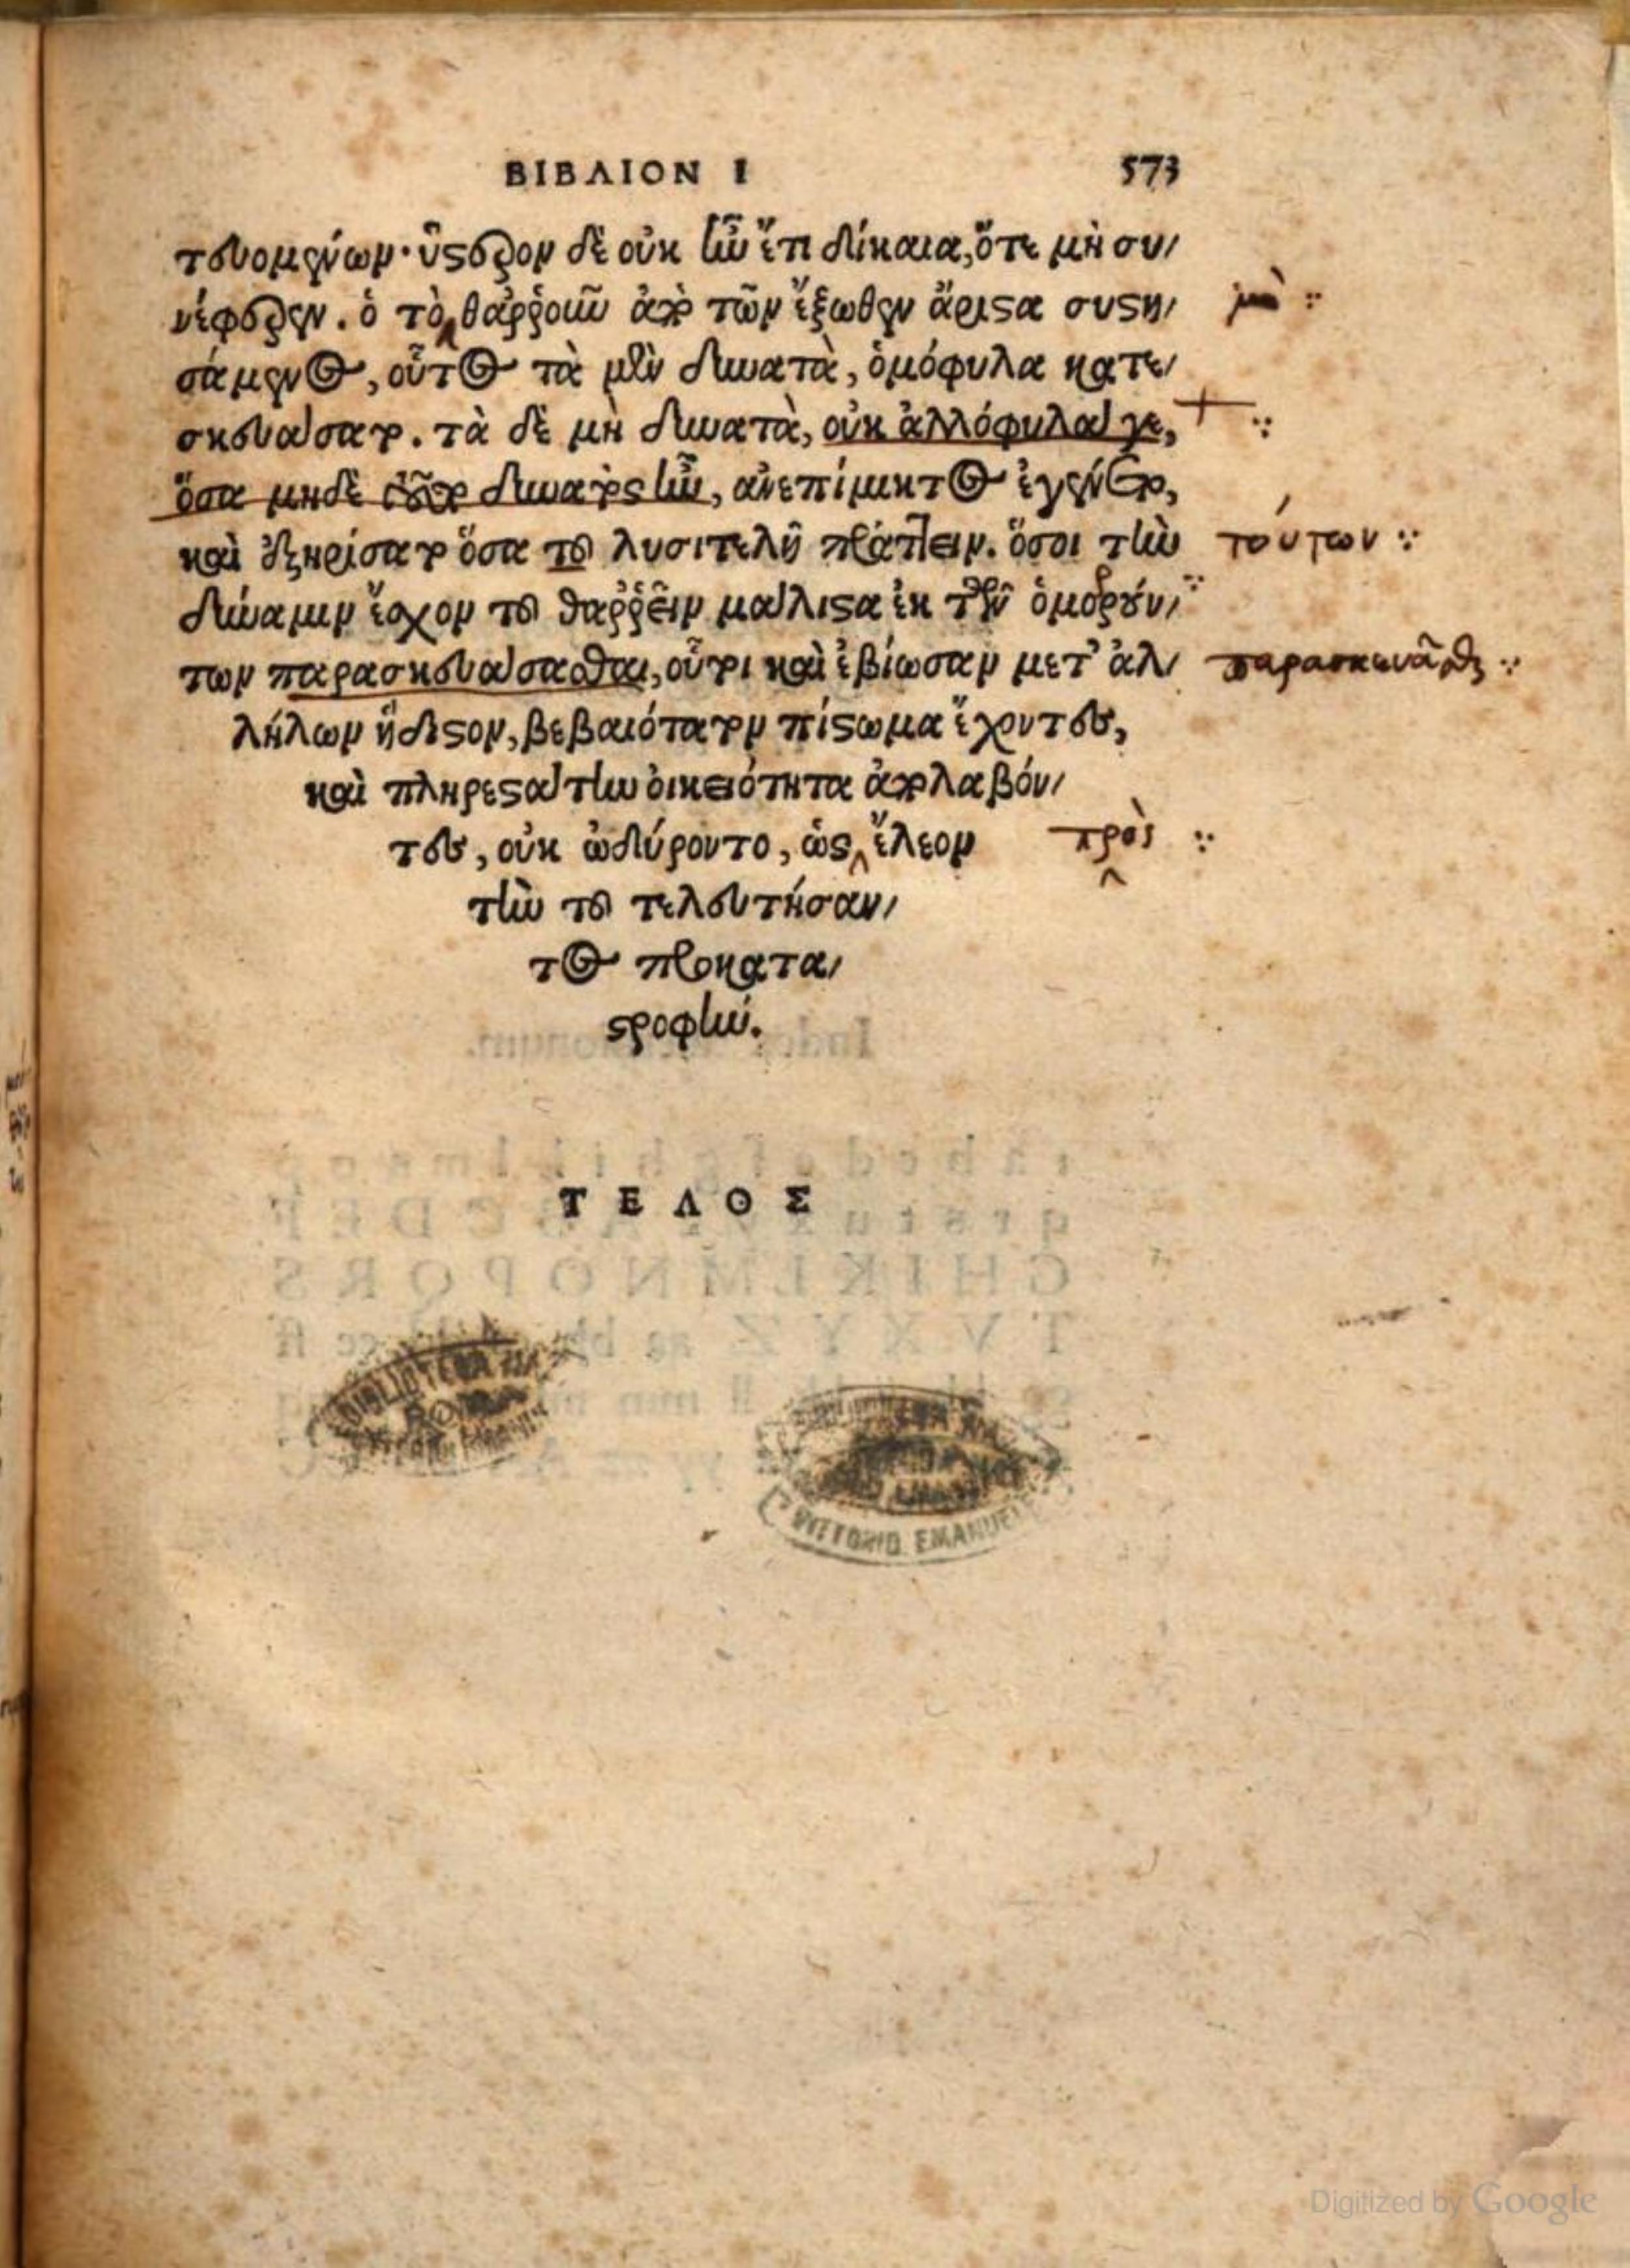 ΒΙΒΛΙΟΝ Ι 573
τευομένων· ὕστερον δὲ οὐκ ἦν ἔτι δίκαια, ὅτε μὴ συ-
νέφερεν. ὁ τὸ θαῤῥοῦν ἀπὸ τῶν ἔξωθεν ἄριστα συστη- μὴ
σάμενος, οὗτος τὰ μὲν δυνατὰ, ὁμόφυλα κατε-
σκευάσατο. τὰ δὲ μὴ δυνατὰ, οὐκ ἀλλόφυλά γε, +
ὅσα μηδὲ τοῦτο δυνατὸς ἦν, ἀνεπίμικτος ἐγένετο,
καὶ ἐξηρίσατο ὅσα τοῦ λυσιτελῆ πράττειν. ὅσοι τὴν τούτων
δύναμιν ἔσχον τοῦ θαῤῥεῖν μάλιστα ἐκ τῶν ὁμορούν-
των παρασκευάσασθαι, οὗτοι καὶ ἐβίωσαν μετ' ἀλ- παρασκευᾶσθαι
λήλων ἥδιστον, βεβαιότατον πίστωμα ἔχοντες,
καὶ πληρεστάτην οἰκειότητα ἀπολαβόν-
τες, οὐκ ὠδύροντο, ὡς ἔλεον πρὸς
τὴν τοῦ τελευτήσαν-
τος προκατα-
στροφήν.
ΤΕΛΟΣ
VITTORIO EMANUELE
Digitized by Google